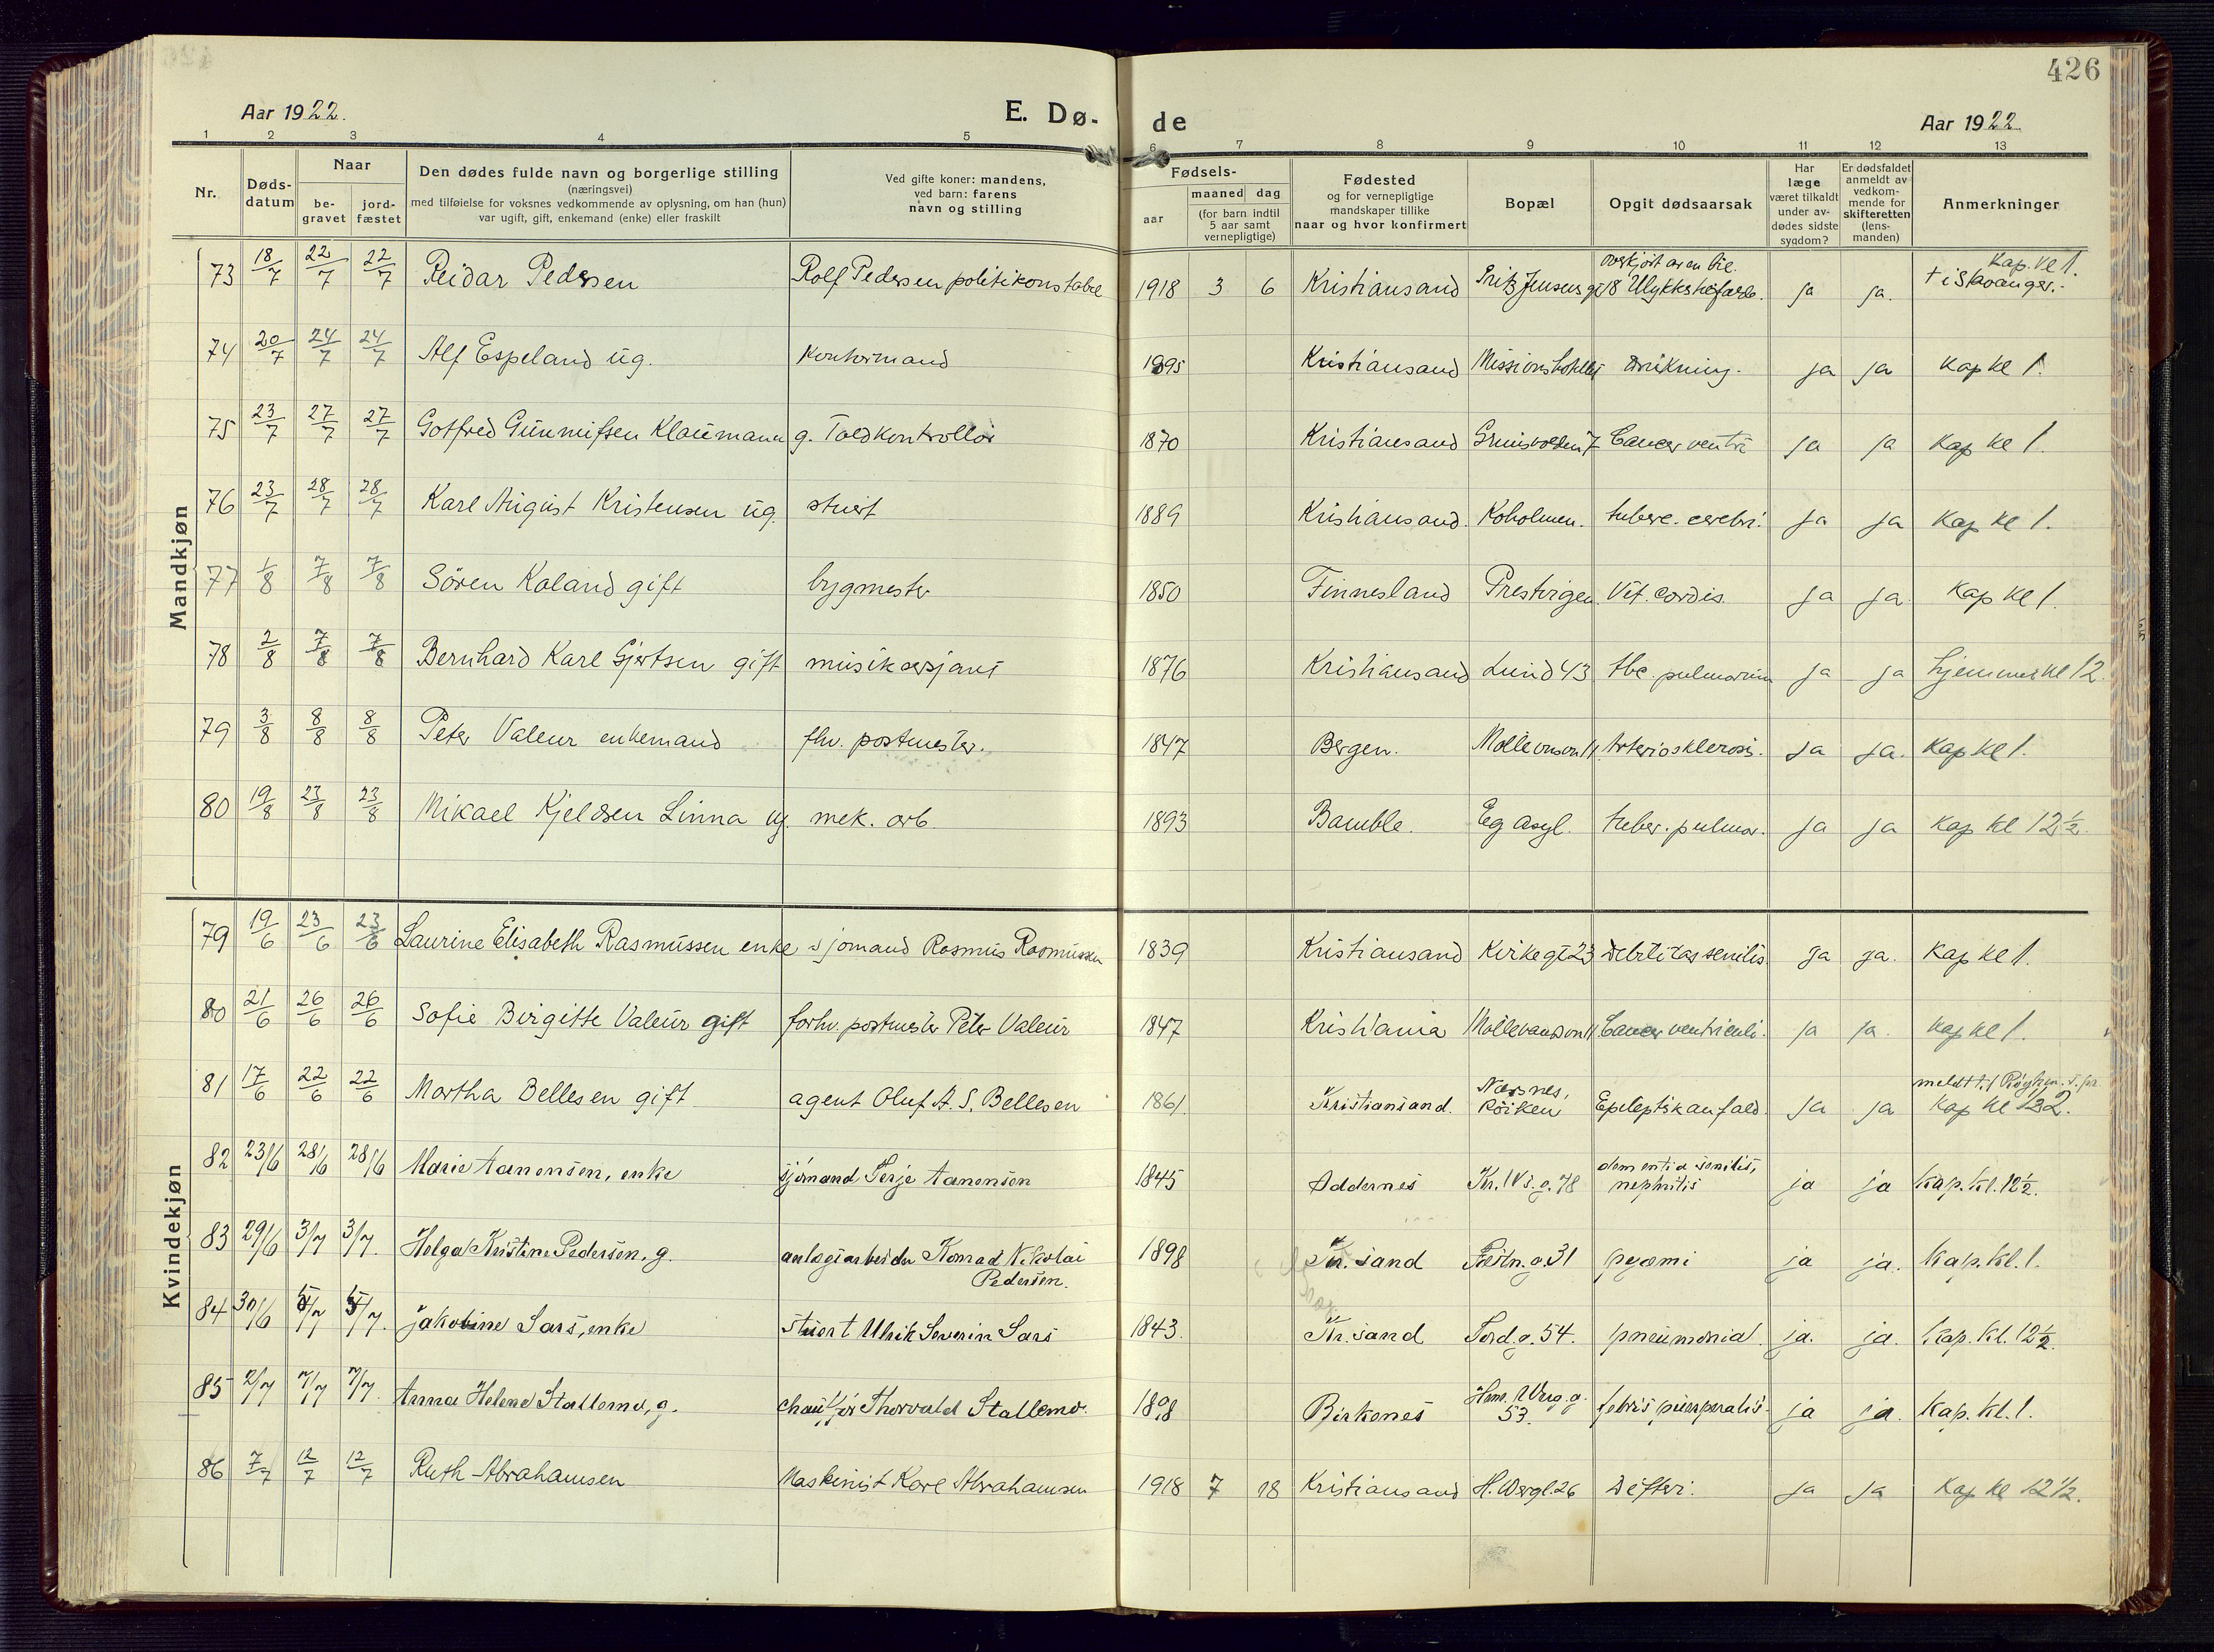 426
Aar 1922.
E. Dø-
de
Aar 1922
1 2 3 4 5 6 7 8 9 10 11 12 13
Nr.
Døds-
datum
Naar
be-
gravet
jord-
fæstet
Den dødes fulde navn og borgerlige stilling
(næringsvei)
med tilføielse for voksnes vedkommende av oplysning, om han (hun)
var ugift, gift, enkemand (enke) eller fraskilt
Ved gifte koner: mandens,
ved barn: farens
navn og stilling
Fødsels-
aar
maaned dag
(for barn indtil
5 aar samt
vernepligtige)
Fødested
og for vernepligtige
mandskaper tillike
naar og hvor konfirmert
Bopæl
Opgit dødsaarsak
Har
læge
været tilkaldt
under av-
dødes sidste
sygdom?
Er dødsfaldet
anmeldt av
vedkom-
mende for
skifteretten
(lens-
manden)
Anmerkninger
Mandkjøn
73 18/7 22/7 22/7 Reidar Pedersen Rolf Pedersen politikonstabel 1918 3 6 Kristiansand Fritz Jensens gt 8 overkjört av en bil. Ulykkestilfælde. ja ja. Kap. kl 1. † i Stavanger.
74 20/7 24/7 24/7 Alf Espeland ug. Kontormand 1895 Kristiansand Missionshotellet drukning. ja ja Kap kl 1.
75 23/7 27/7 27/7 Gotfred Gunnufsen Klaumann g. Toldkontrollør 1870 Kristiansand Grimsvolden 7 Cancer ventr ja ja Kap kl 1.
76 23/7 28/7 28/7 Karl August Kristensen ug. stuert 1889 Kristiansand. Koholmen. tuberc. cerebri. ja ja Kap kl 1.
77 1/8 7/8 7/8 Sören Koland gift bygmester 1850 Finnesland Prestvigen Vit. cordis. ja ja Kap kl 1.
78 2/8 7/8 7/8 Bernhard Karl Gjertsen gift musiksersjant 1876 Kristiansand Lund 43 tbc. pulmonum ja ja hjemme kl 12.
79 3/8 8/8 8/8 Peter Valeur enkemand fhv. postmester. 1847 Bergen. Arteriosklerosis. ja ja. Kap kl 1.
80 19/8 23/8 23/8 Mikael Kjeldsen Linna ug. mek. arb. 1893 Bamble. Eg asyl. tuber. pulmon. ja ja Kap kl 12 ½.
Kvindekjøn
79 19/6 23/6 23/6 Laurine Elisabeth Rasmussen enke sjømand Rasmus Rasmussen 1839 Kristiansand Kirkegt 23 debilitas senilis. ja ja. Kap kl 1.
80 21/6 26/6 26/6 Sofie Birgitte Valeur gift forhv. postmester Peter Valeur 1847 Kristiania Møllevandsvn 11 Cancer ventriculi. ja ja. Kap kl 1.
81 17/6 22/6 22/6 Martha Bellesen gift agent Oluf A. S. Bellesen 1861. Kristiansand. Nærsnes, Röiken Epileptisk anfald. ja ja meldt til Röyken. s. pr. Kap kl
82 23/6 28/6 28/6 Marie Aanensen, enke sjömand Terje Aanensen 1845 Oddernes Kr. IVs. g. 78 dementia senilis, nephritis ja ja Kap. kl. 12½.
83 29/6 3/7 3/7. Helga Kristine Pedersen, g. anlægsarbeider Konrad Nikolai Pedersen. 1898 Kr. sand Festn. g. 31 pyæmi ja ja. Kap. kl. 1.
84 30/6 5/7 5/7. Jakobine Sars, enke Stuert Ulrik Severin Sars 1843. Kr. sand Tord. g. 54. pneumonia. ja. ja. Kap. kl. 12½.
85 2/7 7/7 7/7. Anna Helene Stallemo, g. chauffør Thorvald Stallemo. 1898 Birkenes Hen. Werg. g. 53. febris puerperalis. ja ja. Kap. kl. 1.
86 7/7 12/7 12/7 Ruth Abrahamsen Maskinist Karl Abrahamsen 1918 7 18 Kristiansand H. Wergl. 26 Difteri. ja ja Kap kl 12 ½.